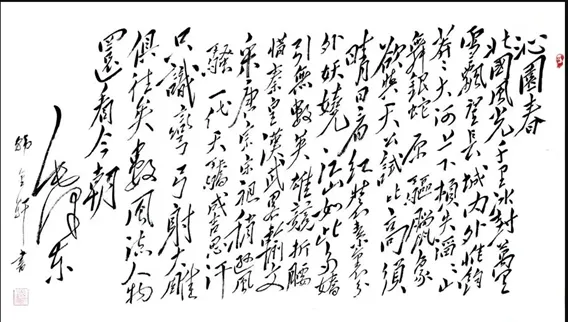 沁園春
北國風光千里冰封萬里
雪飄望長城内外惟餘
莽莽大河上下頓失滔滔山
舞銀蛇原驅臘象
欲與天公試比高須
晴日看红裝素裹分
外妖嬈江山如此多嬌
引無數英雄競折腰
惜秦皇漢武略輸文
采唐宗宋祖稍遜風
騷一代天驕成吉思汗
只識彎弓射大雕
俱往矣數風流人物
還看今朝
毛澤東
書